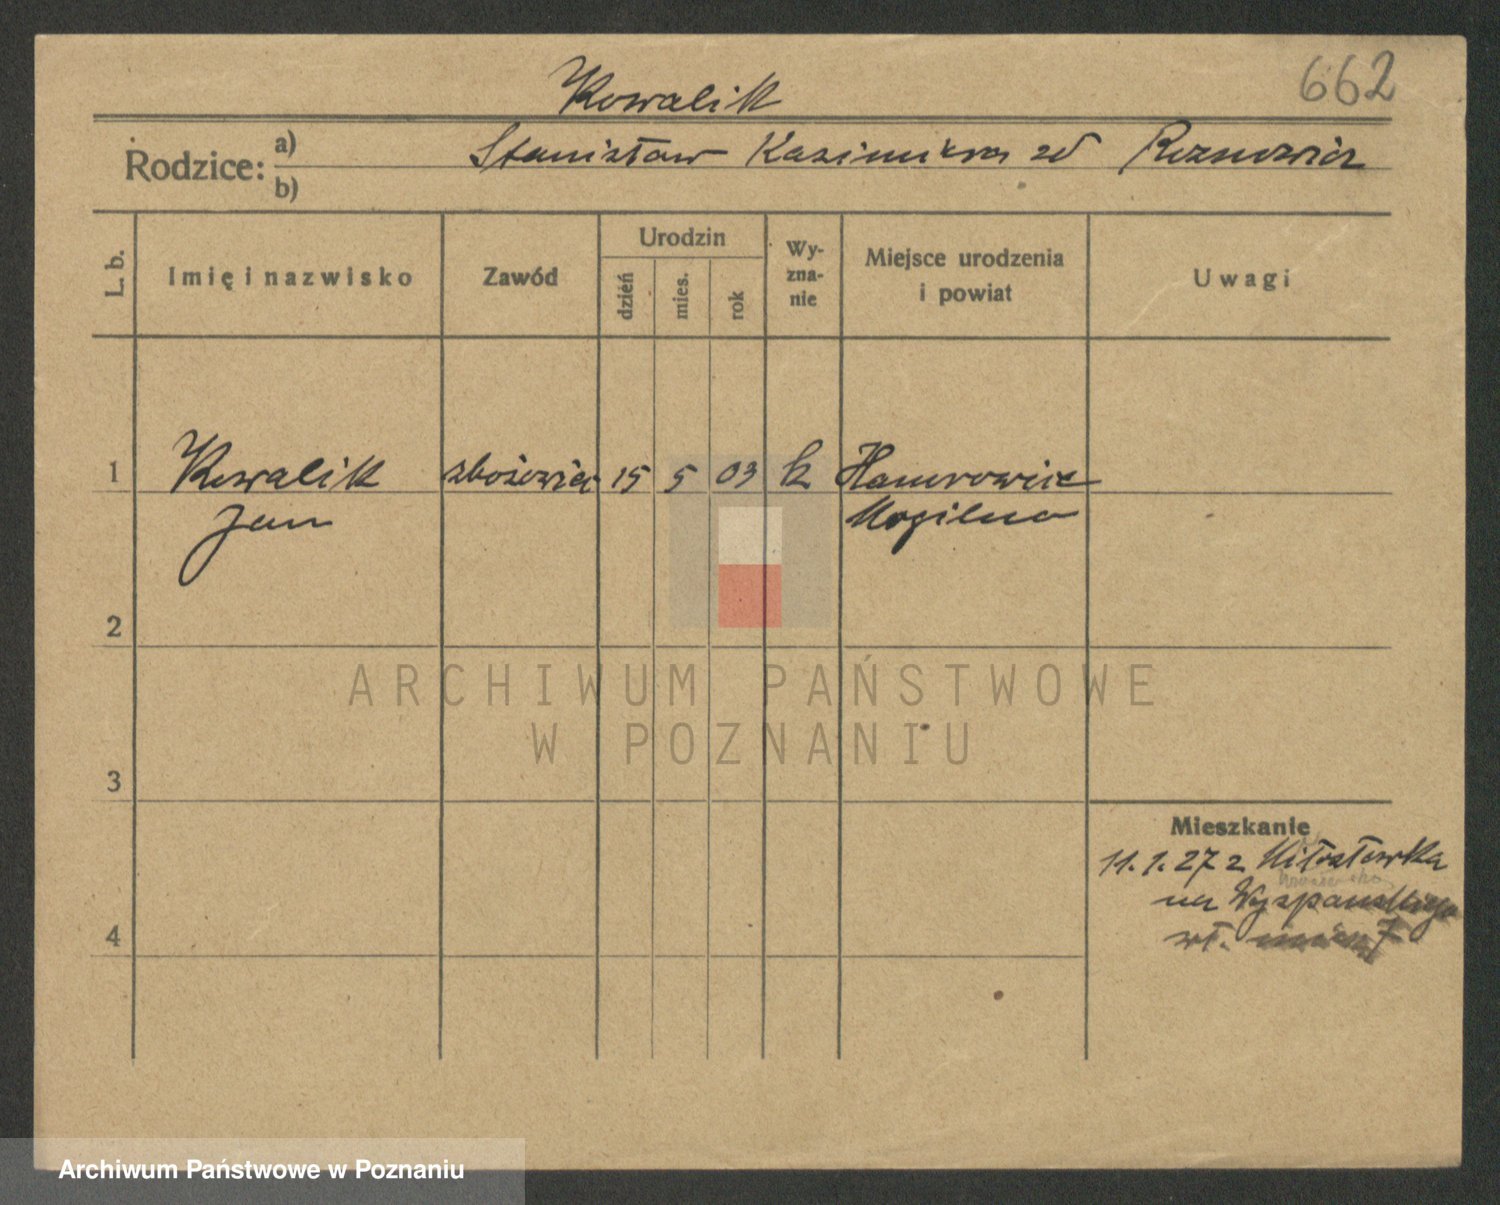 662
Kowalik
Rodzice: a) Stanisław Kazimiera zd
b)
L. b.
Imię i nazwisko
Zawód
Urodzin
dzień
mies.
rok
Wy-
zna-
nie
Miejsce urodzenia
i powiat
Uwagi
1 Kowalik zbożowiec 15 5 03 k
Jan Mogilno
2
ARCHIWUM PAŃSTWOWE
W POZNANIU
3
Mieszkanie
11.1.27 z
na Wyspańskiego
4 wł. 7
Archiwum Państwowe w Poznaniu